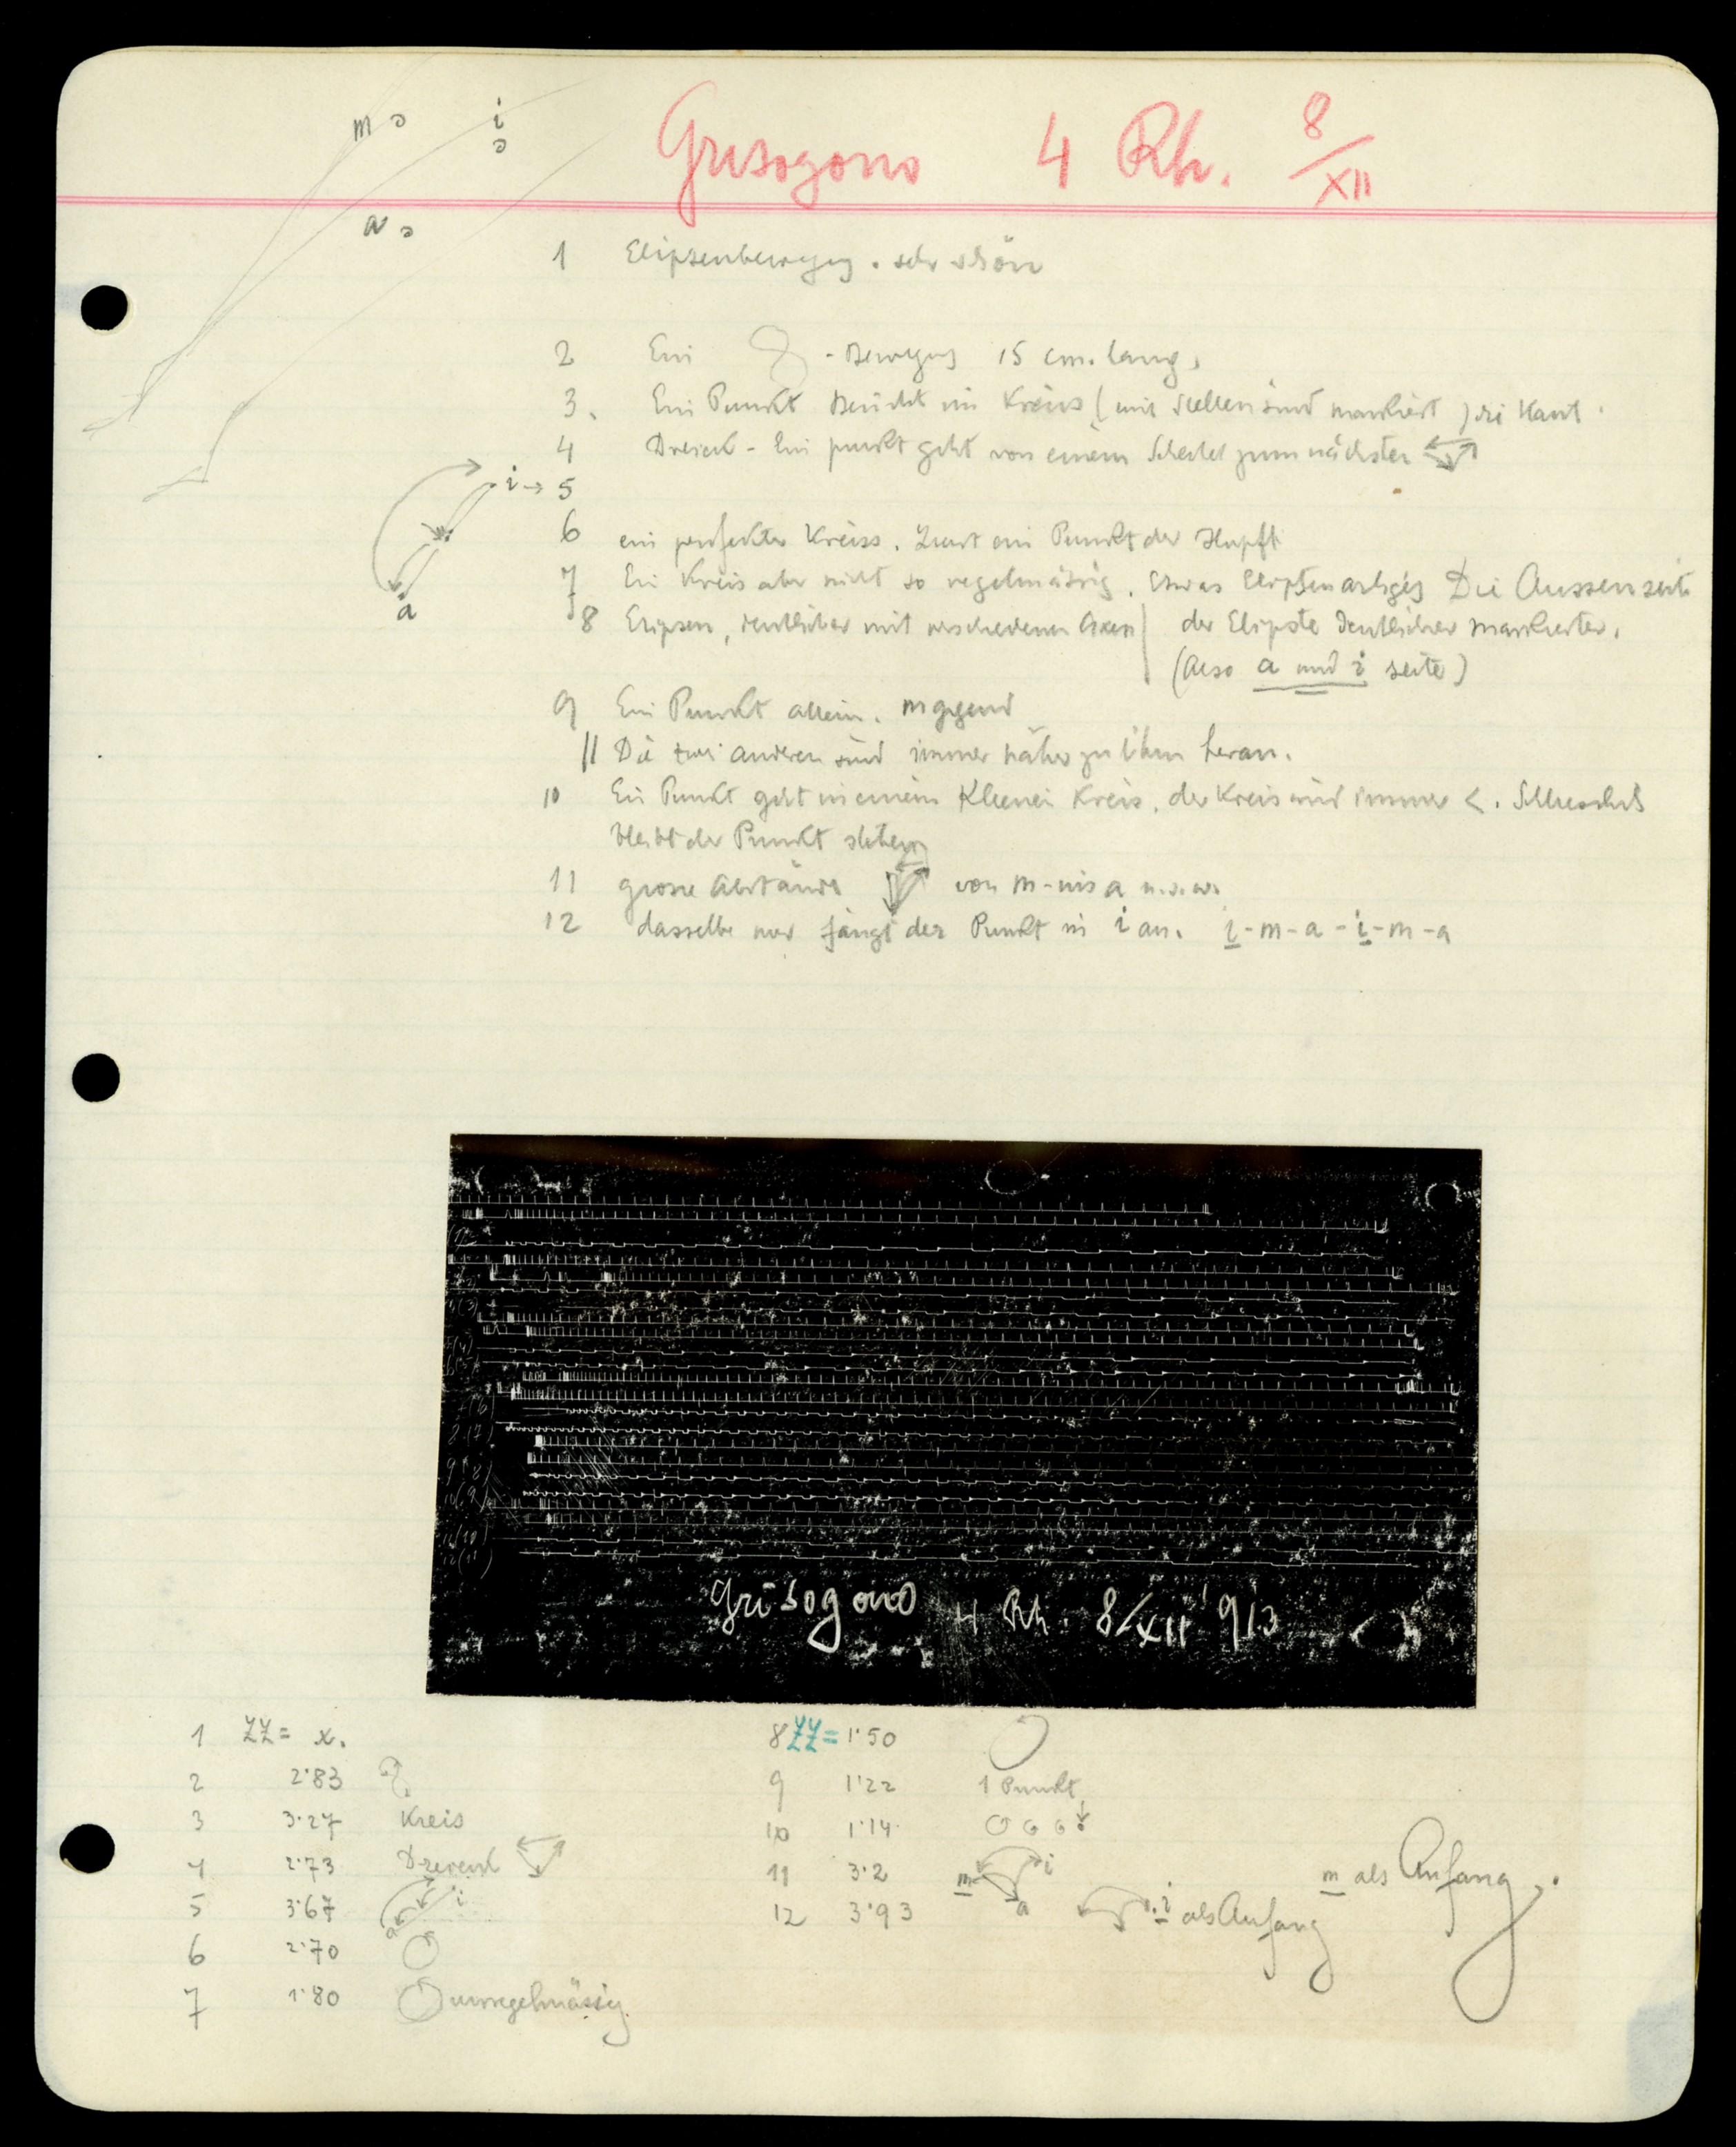 m i
a
Grisogono 4 Rh. 8/XII
1 Elipsenbewegung. sehr schön
2 Ein 8 - Bewegung 15 cm. lang.
3. Ein Punkt im Kreis (
4 Dreieck - Ein punkt geht von einem zum nächsten
i → 5
a
6 ein perfekter Kreiss. Zuerst ein Punkt der Hupft
7 Ein Kreis aber nicht so regelmässig. Etwas Elipsenartiges Die Aussenseite
8 Elipsen, deutlicher mit verschiedenen Axen der Elipste deutlicher markierter.
(Also a und i seite)
9 Ein Punkt allein. m gegend
|| Die zwei anderen sind immer näher zu ihm heran.
10 Ein Punkt geht in einem Kleinen Kreis, der Kreis wird immer <.
bleibt der Punkt stehen
11 grosse Abstände von m - a u.s.w.
12 dasselbe nur fängt der Punkt in i an. i-m-a-i-m-a
Grisogono 4 Rh. 8/XII 913
1 ZZ = x.
2 2·83
3 3·27 Kreis
4 2·73 Dreieck
5 3·67 a i
6 2·70
7 1·80 unregelmässig.
8 ZZ = 1·50
9 1·22 1 Punkt
10 1·14
11 3·2 m i a m als Anfang.
12 3·93 i als Anfang